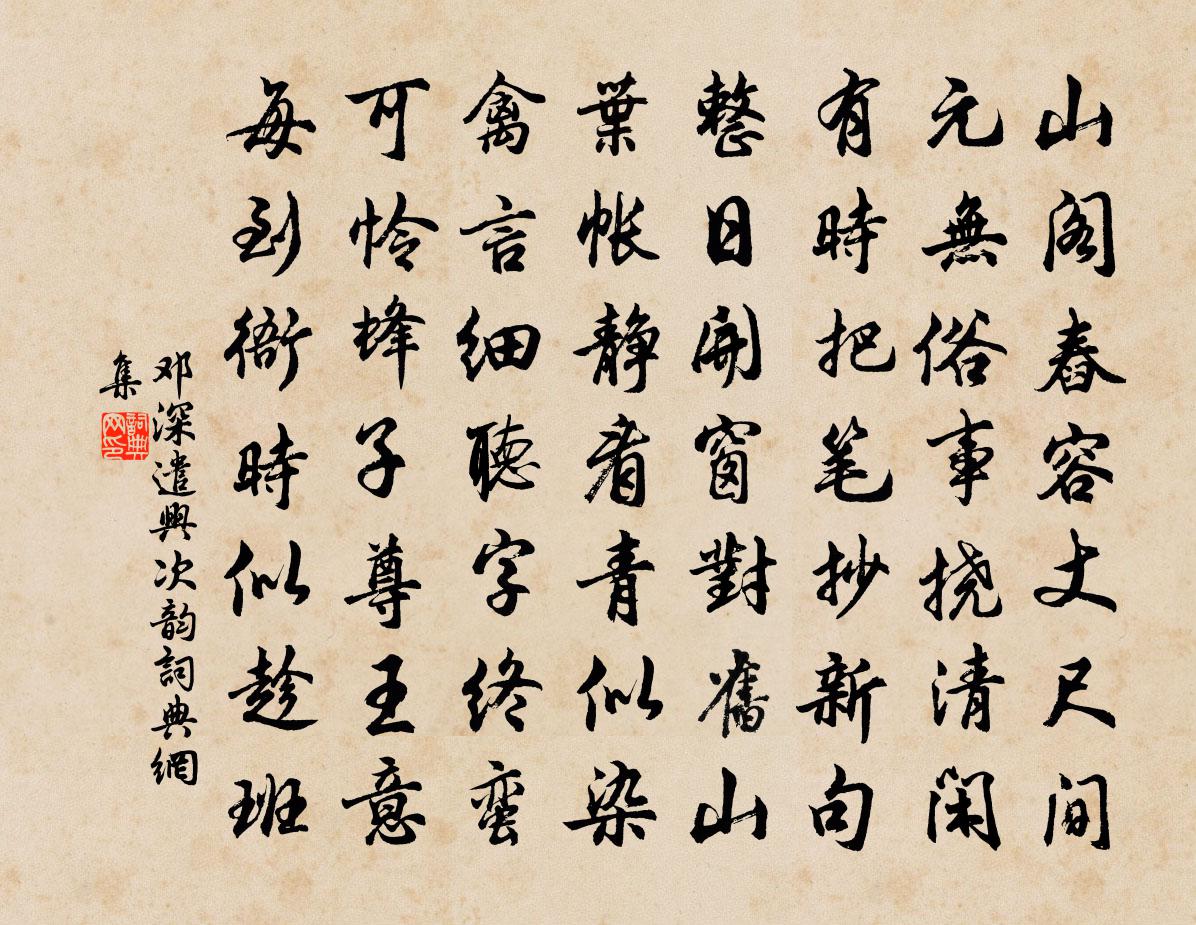 山阁舂容丈尺间
元無俗事挠清闲
有時把笔抄新句
整日開窗對舊山
葉帐静看青似染
禽言细聽字终蛮
可怜蜂子尊王意
每到衙時似趁班
邓深遣興次韵詞典網
集
詞典网印